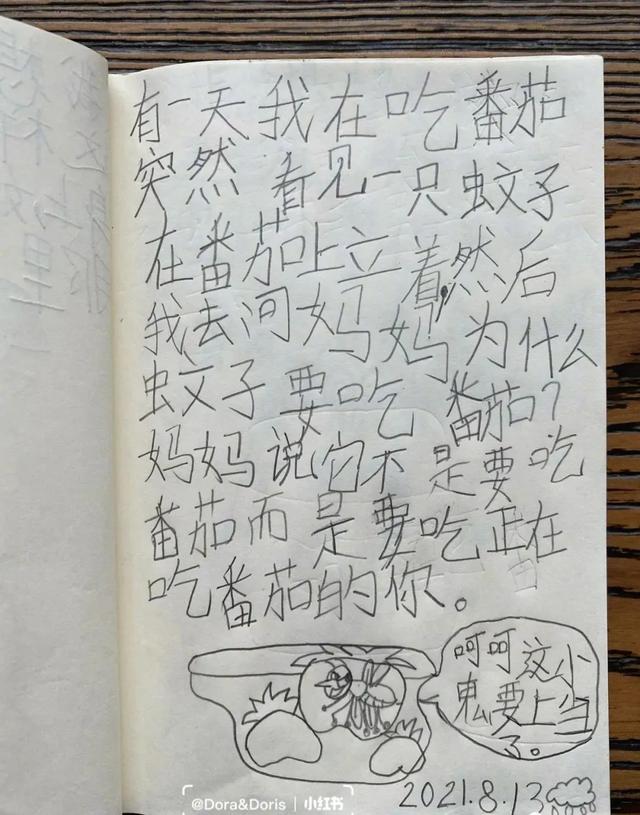 有一天我在吃番茄
突然看见一只蚊子
在番茄上立着然后
我去问妈妈为什么
蚊子要吃番茄？
妈妈说它不是要吃
番茄而是要吃正在
吃番茄的你。
呵呵这小
鬼要上当
了。
2021.8.13
@Dora&Doris | 小红书